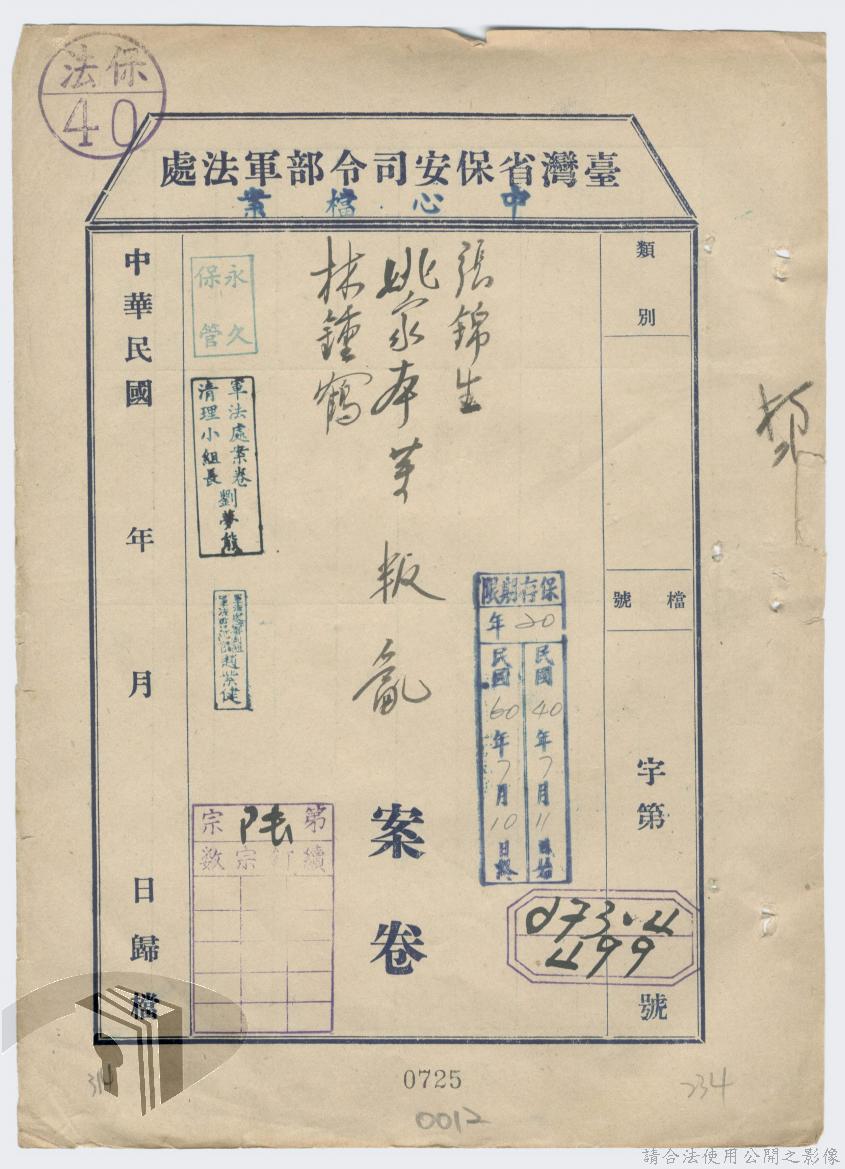 保法
40
臺灣省保安司令部軍法處
中心檔案
類別
檔號
字第
號
張錦生
姚家本等叛亂
林鍾鶴
案卷
保存期限
20年
民國40年7月11日起始
民國60年7月10日終
073.4
499
永久
保管
軍法處案卷
清理小組長劉夢熊
趙業健
第陸宗
續訂宗數
中華民國 年 月 日歸檔
0725
0012
314
234
請合法使用公開之影像